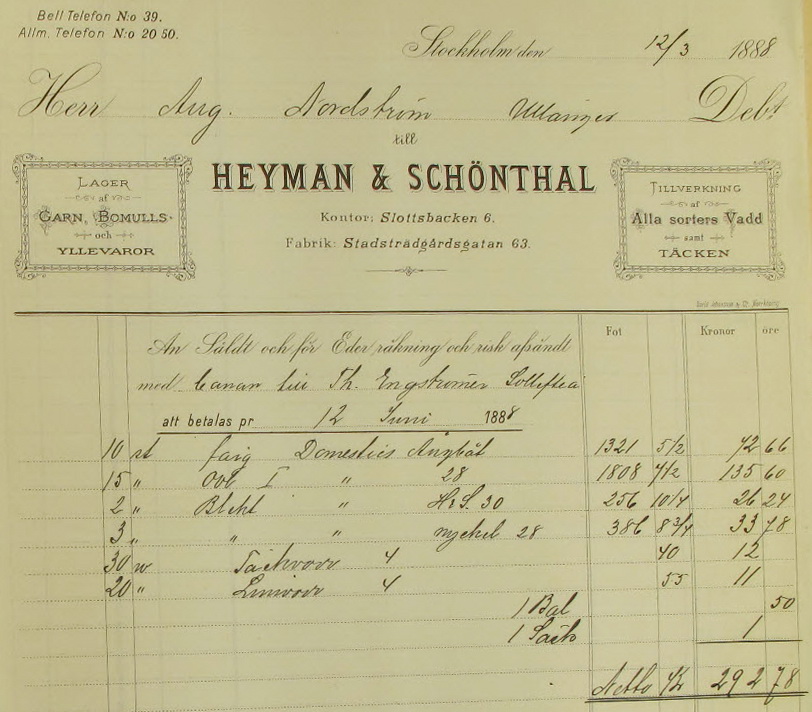 Bell Telefon N:o 39.
Allm. Telefon N:o 20 50.
Stockholm den 12/3 1888
Herr Aug. Nordström Ullånger Debt
till
HEYMAN & SCHÖNTHAL
LAGER
af
GARN, BOMULLS-
och
YLLEVAROR
Kontor: Slottsbacken 6.
Fabrik: Stadsträdgårdsgatan 63.
TILLVERKNING
af
Alla sorters Vadd
samt
TÄCKEN
Fot Kronor öre
An Såldt och för Eder räkning och risk afsändt
med banan till Th. Engströmer Sollefteå
att betalas pr 12 Juni 1888
10 st färg Domestics Angbåt 1321 5 1/2 72 66
15 " Obl I " 28 1808 7 1/2 135 60
2 " Blekt " H.S. 30 256 10 1/4 26 24
3 " " " nyckel 28 386 8 3/4 33 78
30 4 40 12
20 " 4 55 11
1 Bal 50
1 Säck 1
Netto 292 78